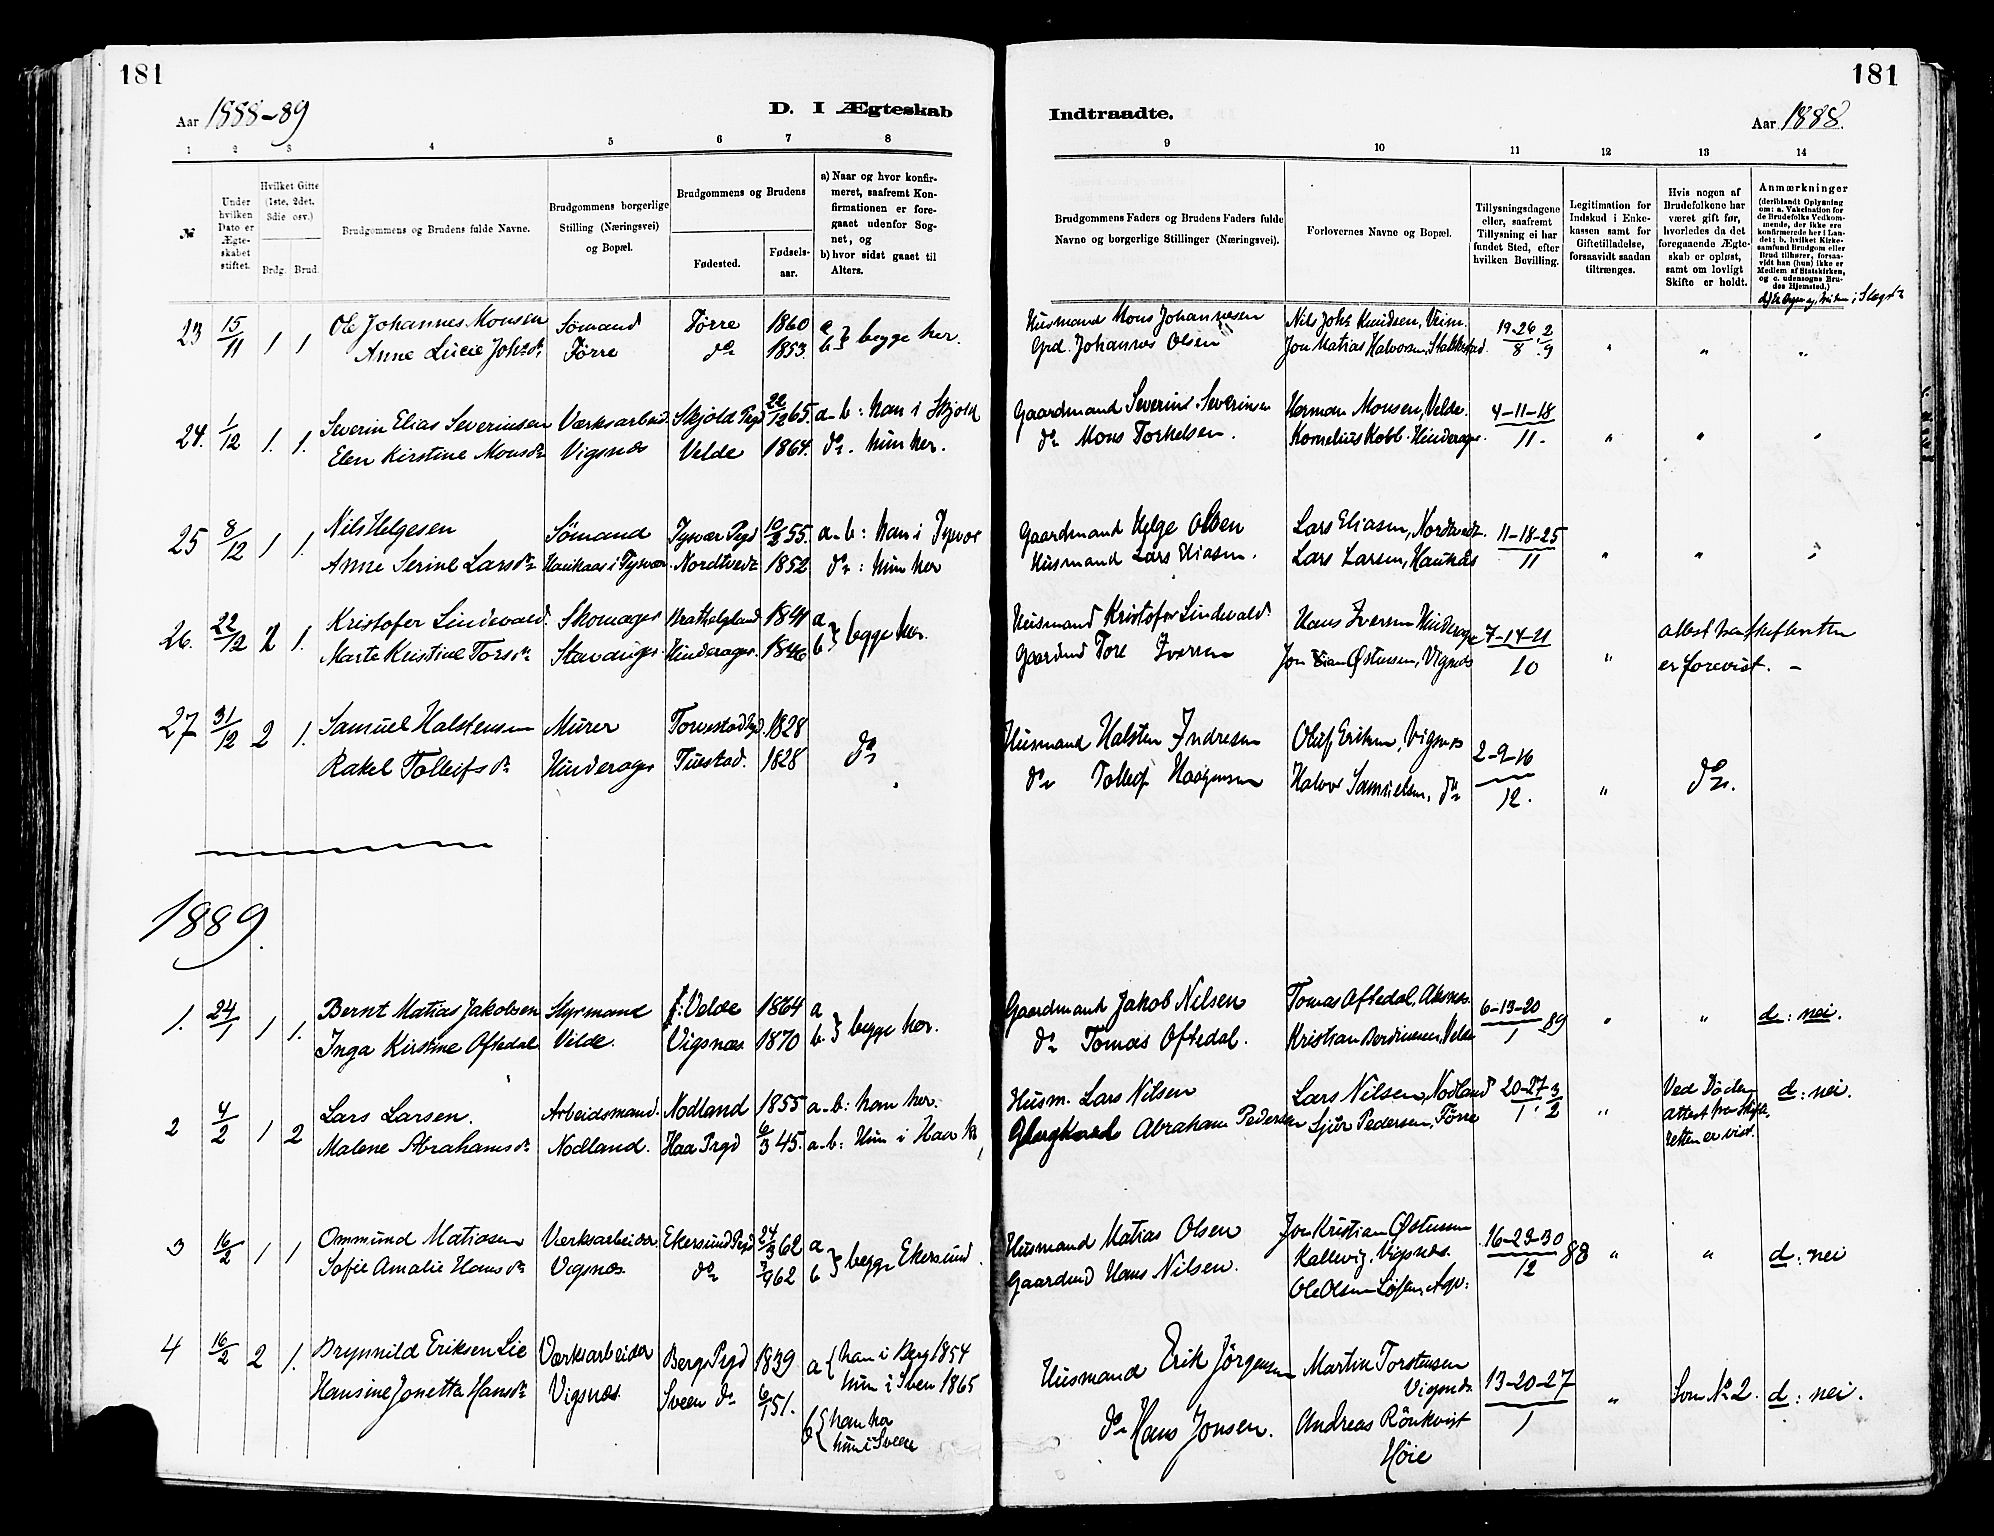 181
181
Aar 1888-89
D. I Ægteskab
Indtraadte.
Aar 1888.
1 2 3 4 5 6 7 8
9 10 11 12 13 14
№
Under hvilken Dato er Ægteskabet stiftet.
Hvilket Gifte (1ste, 2det, 3die osv.)
Brdg. Brud.
Brudgommens og Brudens fulde Navne.
Brudgommens borgerlige Stilling (Næringsvei) og Bopæl.
Brudgommens og Brudens
Fødested.
Fødselsaar.
a) Naar og hvor konfirmeret, saafremt Konfirmationen er foregaaet udenfor Sognet, og
b) hvor sidst gaaet til Alters.
Brudgommens Faders og Brudens Faders fulde Navne og borgerlige Stillinger (Næringsvei).
Forlovernes Navne og Bopæl.
Tillysningsdagene eller, saafremt Tillysning ei har fundet Sted, efter hvilken Bevilling.
Legitimation for Indskud i Enkekassen samt for Giftetilladelse, forsaavidt saadan tiltrænges.
Hvis nogen af Brudefolkene har været gift før, hvorledes da det foregaaende Ægteskab er opløst, samt om lovligt Skifte er holdt.
Anmærkninger (deriblandt Oplysning om: a. Vakcination for de Brudefolks Vedkommende, der ikke ere konfirmerede her i Landet; b. hvilket Kirkesamfund Brudgom eller Brud tilhører, forsaavidt han (hun) ikke er Medlem af Statskirken, og c. udensogns Brudes Hjemsted.)
23 15/11 1 1 Ole Johannes Monsen Sømand Førre 1860 a
Anne Lucie Johsdr Førre do 1853. b } begge her.
Husmand Mons Johannesen Nils Johs Knudsen, Veim. 19-26/8 . 2/9
Grd. Johannes Olsen Jon Matias Halvorsen, " " "
24. 1/12 1. 1. Severin Elias Severinsen Værksarbeid. Skjold Prgd 22/12 65. a-b: han i Skjold
Elen Kirstine Monsdr Vigsnæs Velde 1864. do. hun her.
Gaardmand Severin Severinsen Herman Monsen, Velde. 4-11-18
do Mons Torkelsen. Kornelius Kobb. Hinderager. 11. " " "
25 8/12 1 1. Nils Helgesen Sømand Tysvær Prgd 10/2 55. a-b: han i Tysvær
Anne Serine Larsdr Haukaas i Tysvær. Nordtvedt 1852 do: hun her
Gaardmand Helge Olsen Lars Eliasen, Nordtvedt. 11-18-25
Husmand Lars Eliasen. Lars Larsen, Haukås 11 " " "
26. 22/12 2 1. Kristofer Lindevald. Skomager Brathelgeland 1841 a
Marte Kristine Torsdr Stavanger. Hinderager. 1846 b } begge her.
Husmand Kristofer Lindevald Hans Iversen Hinderage 7-14-21 attest fra skifteretten
Gaardmd Tore Iversen Jon Østensen, Vigsnæs 10 " er forevist. -
27 31/12 2 1. Samuel Halstensen Murer Torvestad Prgd. 1828
Rakel Tolleifsdr Hinderager Tuestad. 1828 do
Husmand Halsten Indresen Oluf Eriksen, Vigsnæs 2-9-16
do Tolleif Haagensen Halvor Samuelsen, do 12. " do.
1889.
1. 24/1 1 1. Bernt Matias Jakobsen Styrmand f: Velde 1864 a
Inga Kirstine Oftedal Velde. Vigsnæs 1870 b. } begge her.
Gaardmand Jakob Nilsen Tomas Oftedal, 6-13-20
do Tomas Oftedal. Kristian Velde 1 89 " " d: nei.
2 4/2 1 2 Lars Larsen. Arbeidsmand. Nodland 1855 a-b: han her.
Malene Abrahamsdr Nodland. Haa Prgd 6/3 45. a-b: hun i Haa
Husm. Lars Nilsen Lars Nilsen, Nodland 20-27/1 . 3/2 Ved Døden d: nei.
Abraham Pedersen Sjur Pedersen, Førre " attest fra skifte-
retten er vist.
3 16/2 1 1 Ommund Matiasen Værksarbeider Ekersund Prgd 24/3 62 a
Sofie Amalie Hansdr Vigsnæs. do 62 b } begge Ekersund.
Husmand Matias Olsen Jon Kristian Østensen 16-23-30
Kallevig, Vigsnæs. 12 88 " " d: nei
Gaardmd Hans Nilsen. Ole Olsen
4 16/2 2 1. Brynnild Eriksen Lie Værksarbeider Bergs Prgd 1839 a { han i Berg 1854
Hansine Jonetta Hansdr Vigsnæs Sveen do 6/1 51. hun i Sveen 1865
b { han her
hun i Sveen
Husmand Erik Jørgensen Martin Torstensen
Vigsnæs 13-20-27 " Som No 2. d: nei.
do Hans Jonsen. Andreas Rönkvist 1
Høie